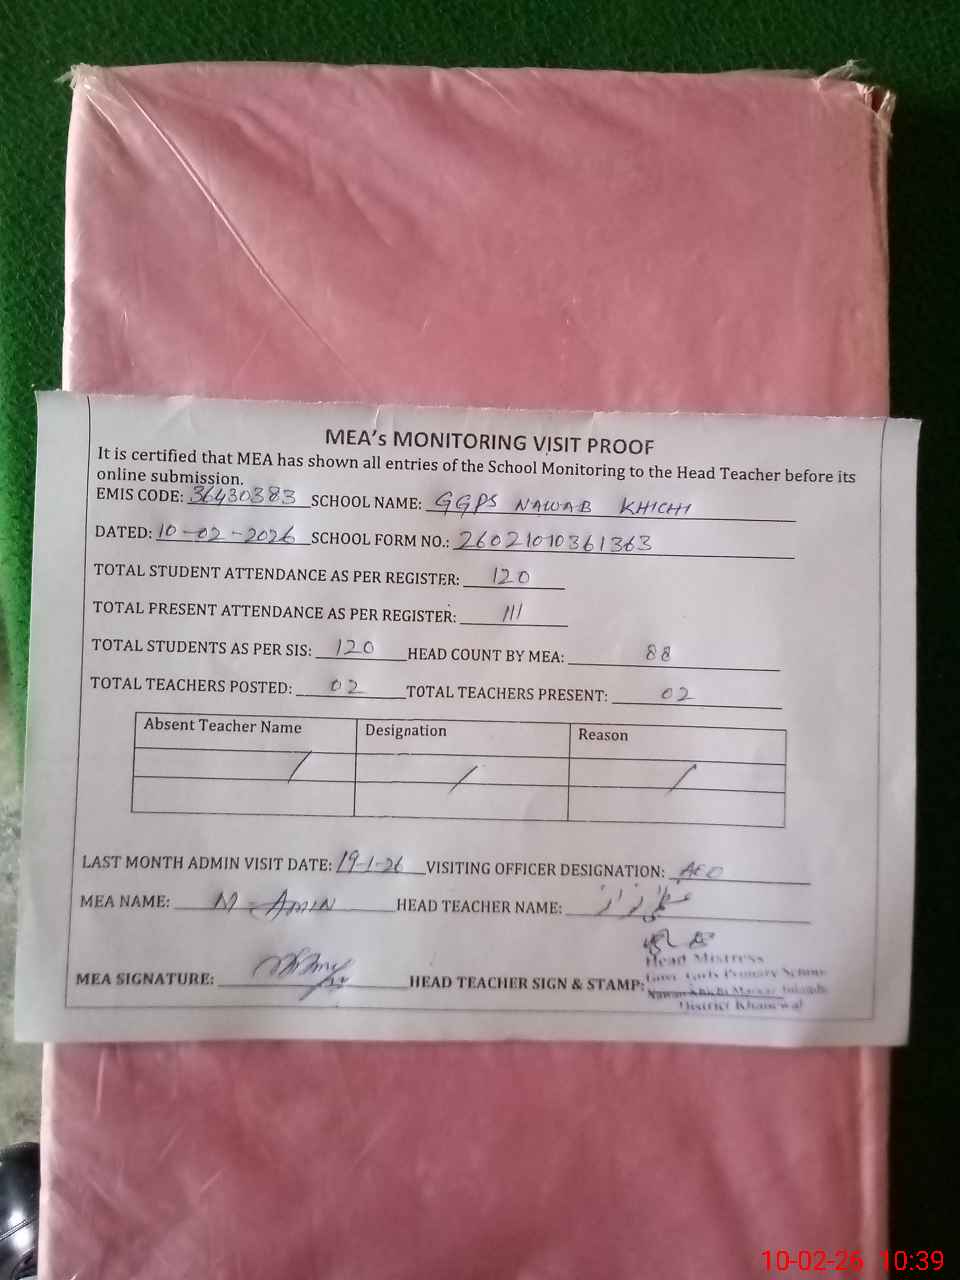 MEA's MONITORING VISIT PROOF
It is certified that MEA has shown all entries of the School Monitoring to the Head Teacher before its
online submission.
EMIS CODE: 36430383 SCHOOL NAME: GGPS NAWAB KHICHI
DATED: 10-02-2026 SCHOOL FORM NO.: 26021010361363
TOTAL STUDENT ATTENDANCE AS PER REGISTER: 120
TOTAL PRESENT ATTENDANCE AS PER REGISTER: 111
TOTAL STUDENTS AS PER SIS: 120 HEAD COUNT BY MEA: 88
TOTAL TEACHERS POSTED: 02 TOTAL TEACHERS PRESENT: 02
Absent Teacher Name Designation Reason
/ / /
LAST MONTH ADMIN VISIT DATE: 19-1-26 VISITING OFFICER DESIGNATION: AEO
MEA NAME: M. AMIN HEAD TEACHER NAME:
Head Mistress
MEA SIGNATURE: HEAD TEACHER SIGN & STAMP: Govt. Girls Primary School
Nawab Khichi Markaz
District Khanewal
10-02-26 10:39